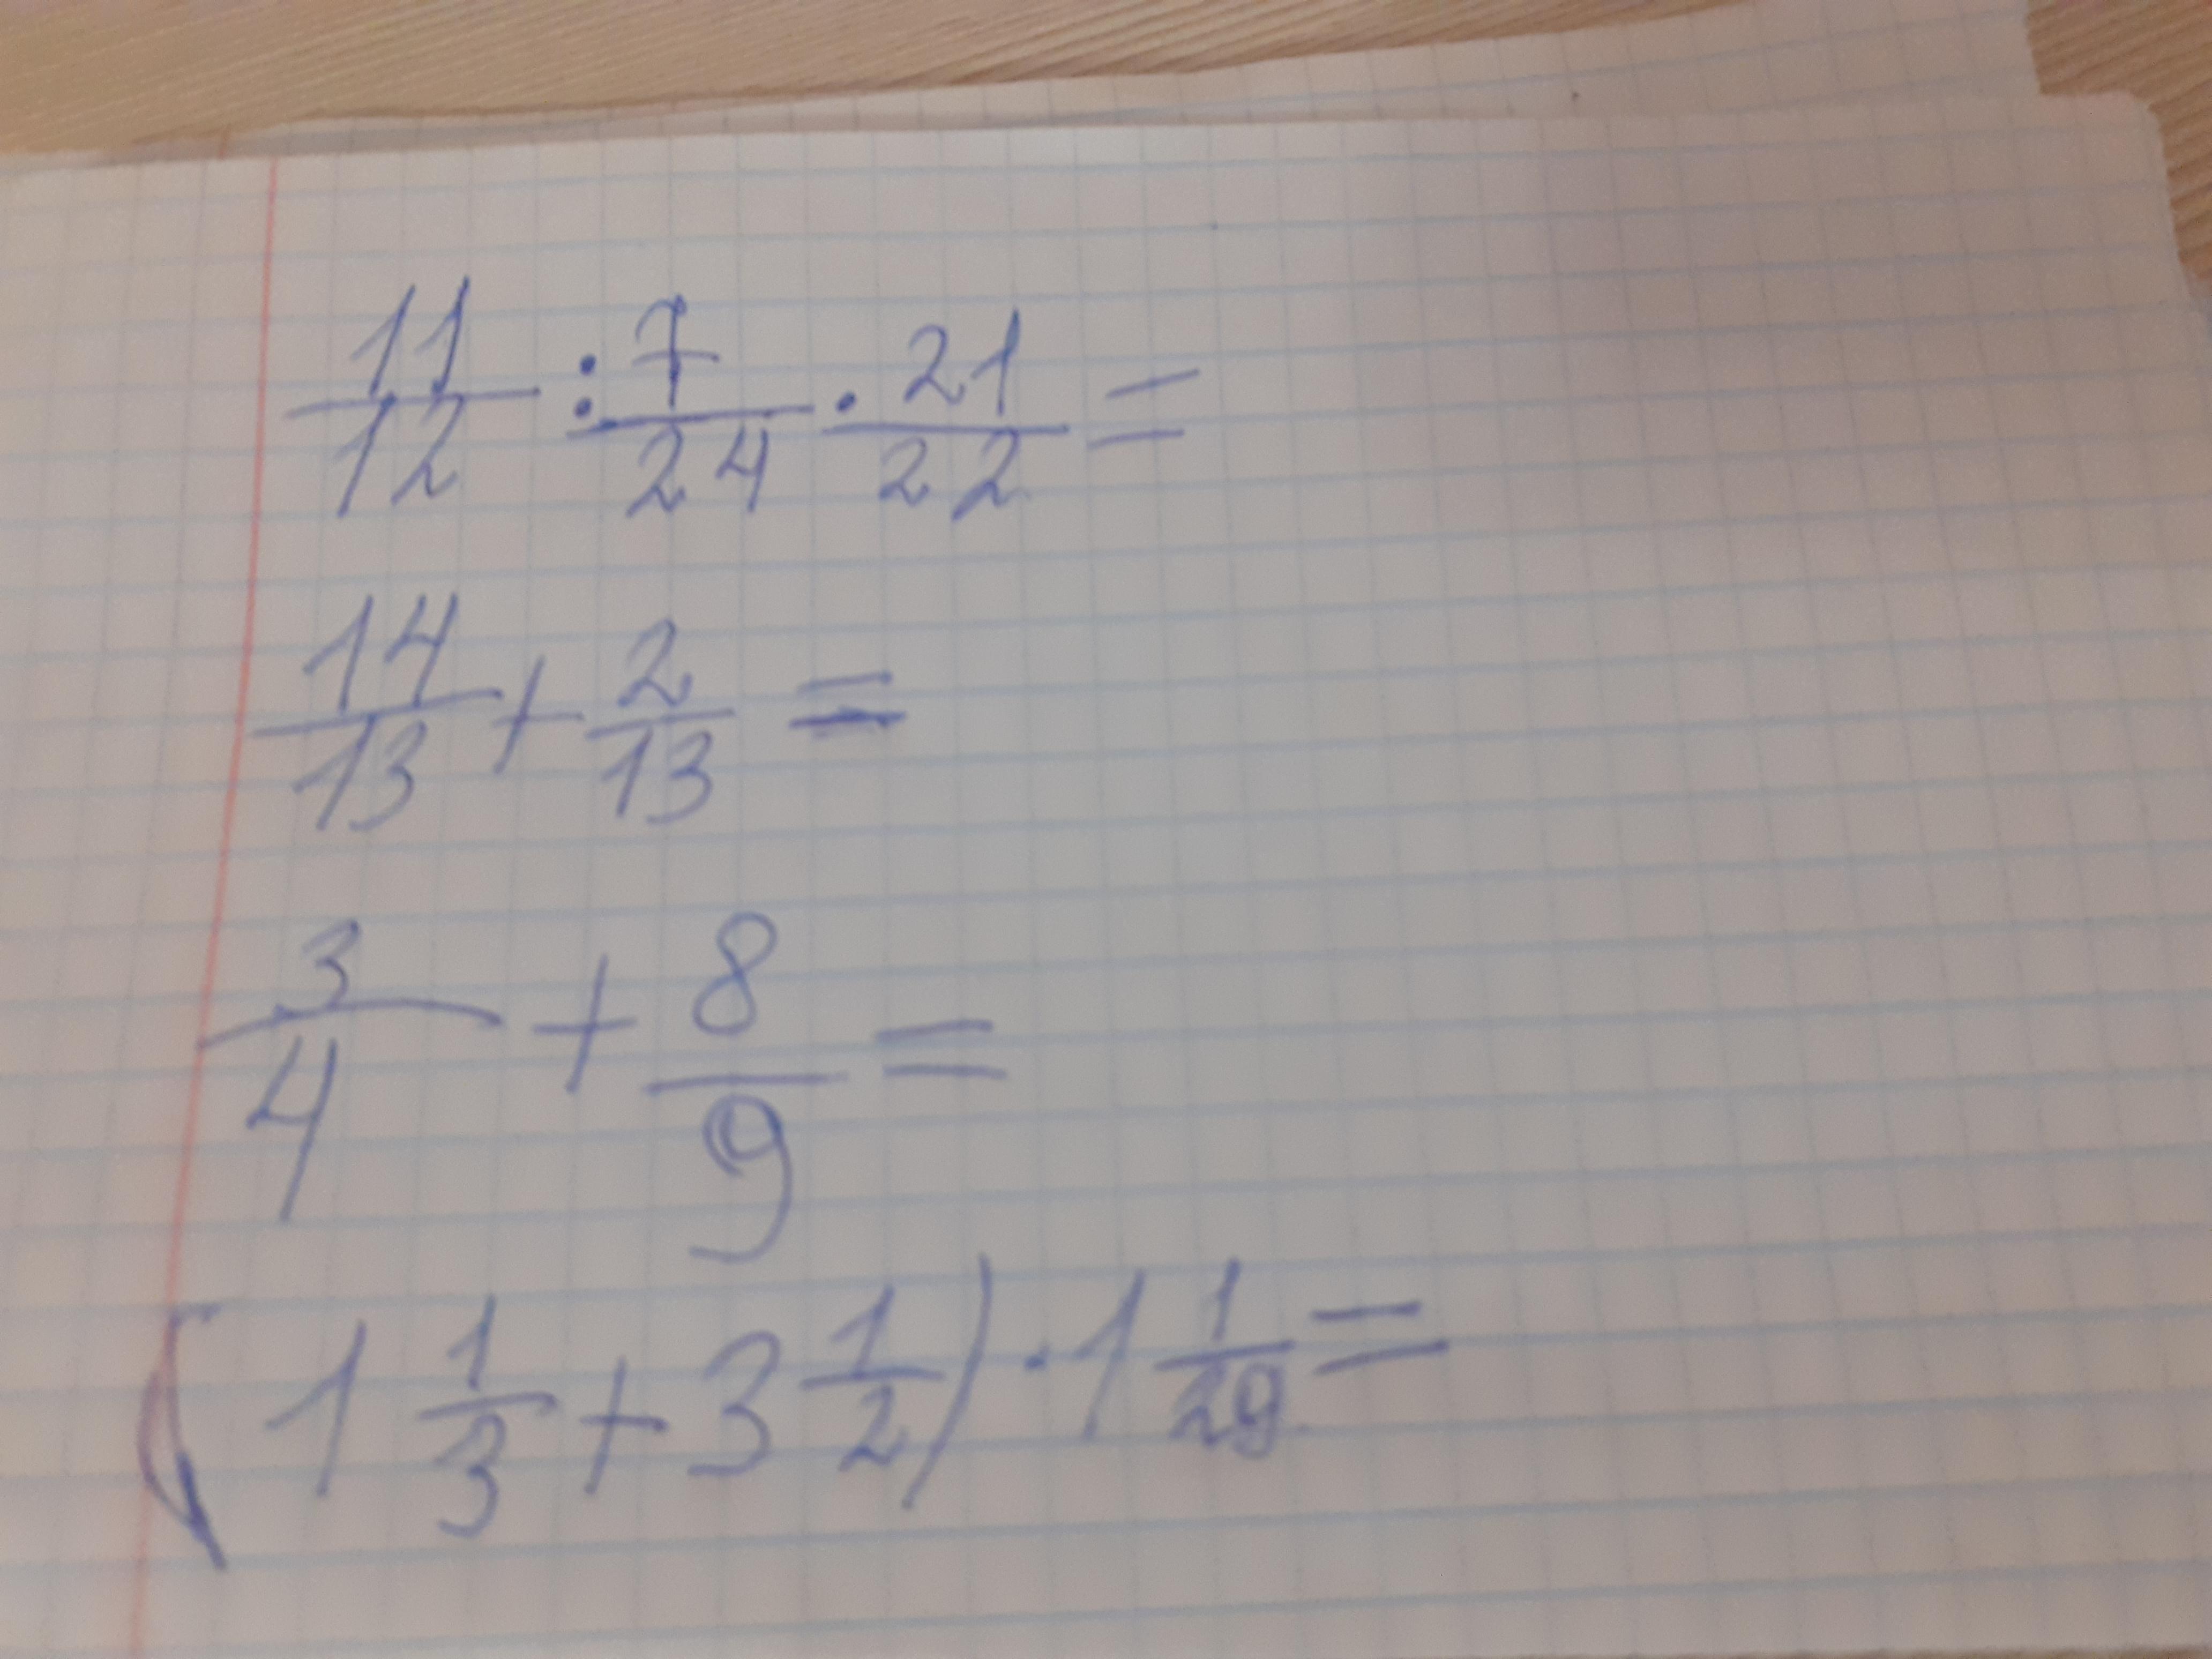 11/12 : 7/24 · 21/22 =
14/13 + 2/13 =
3/4 + 8/9 =
(1 1/3 + 3 1/2) · 1 1/29 =